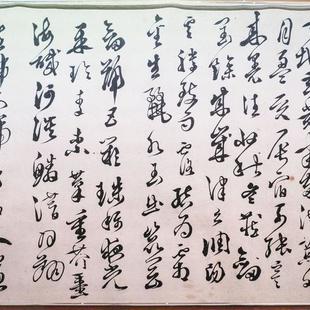 地玄黃宇宙洪荒
月盈昃辰宿列張寒
來暑往秋收冬藏
閏餘成歲律召調陽
雲騰致雨露結為霜
金生麗水玉出崑岡
劍號巨闕珠稱夜光
菓珍李柰菜重芥薑
海醎河淡鱗潛羽翔